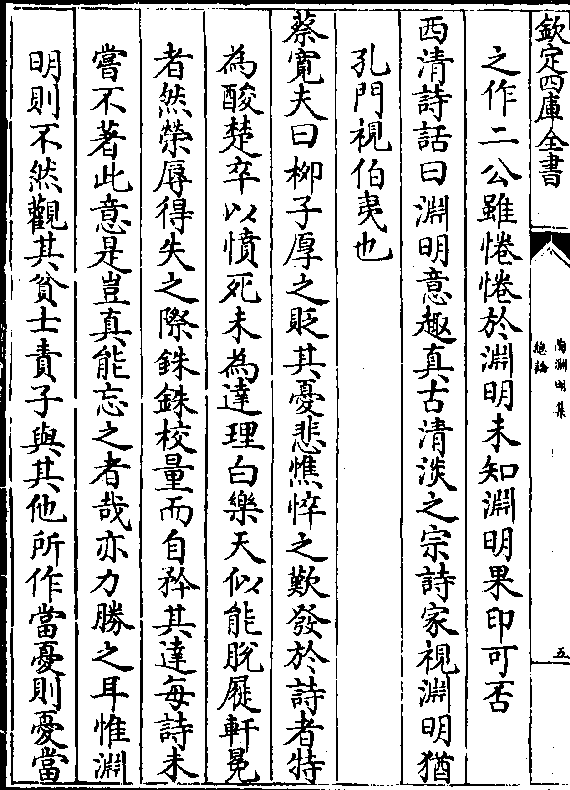 欽定四庫全書
陶淵明集
總論
五
之作二公雖惓惓於淵明未知淵明果印可否
西清詩話曰淵明意趣真古清淡之宗詩家視淵明猶
孔門視伯夷也
蔡寛夫曰柳子厚之貶其憂悲憔悴之歎發於詩者特
為酸楚卒以憤死未為達理白樂天似能脫屣軒冕
者然榮辱得失之際銖銖校量而自矜其達每詩未
嘗不著此意是豈真能忘之者哉亦力勝之耳惟淵
明則不然觀其貧士責子與其他所作當憂則憂當